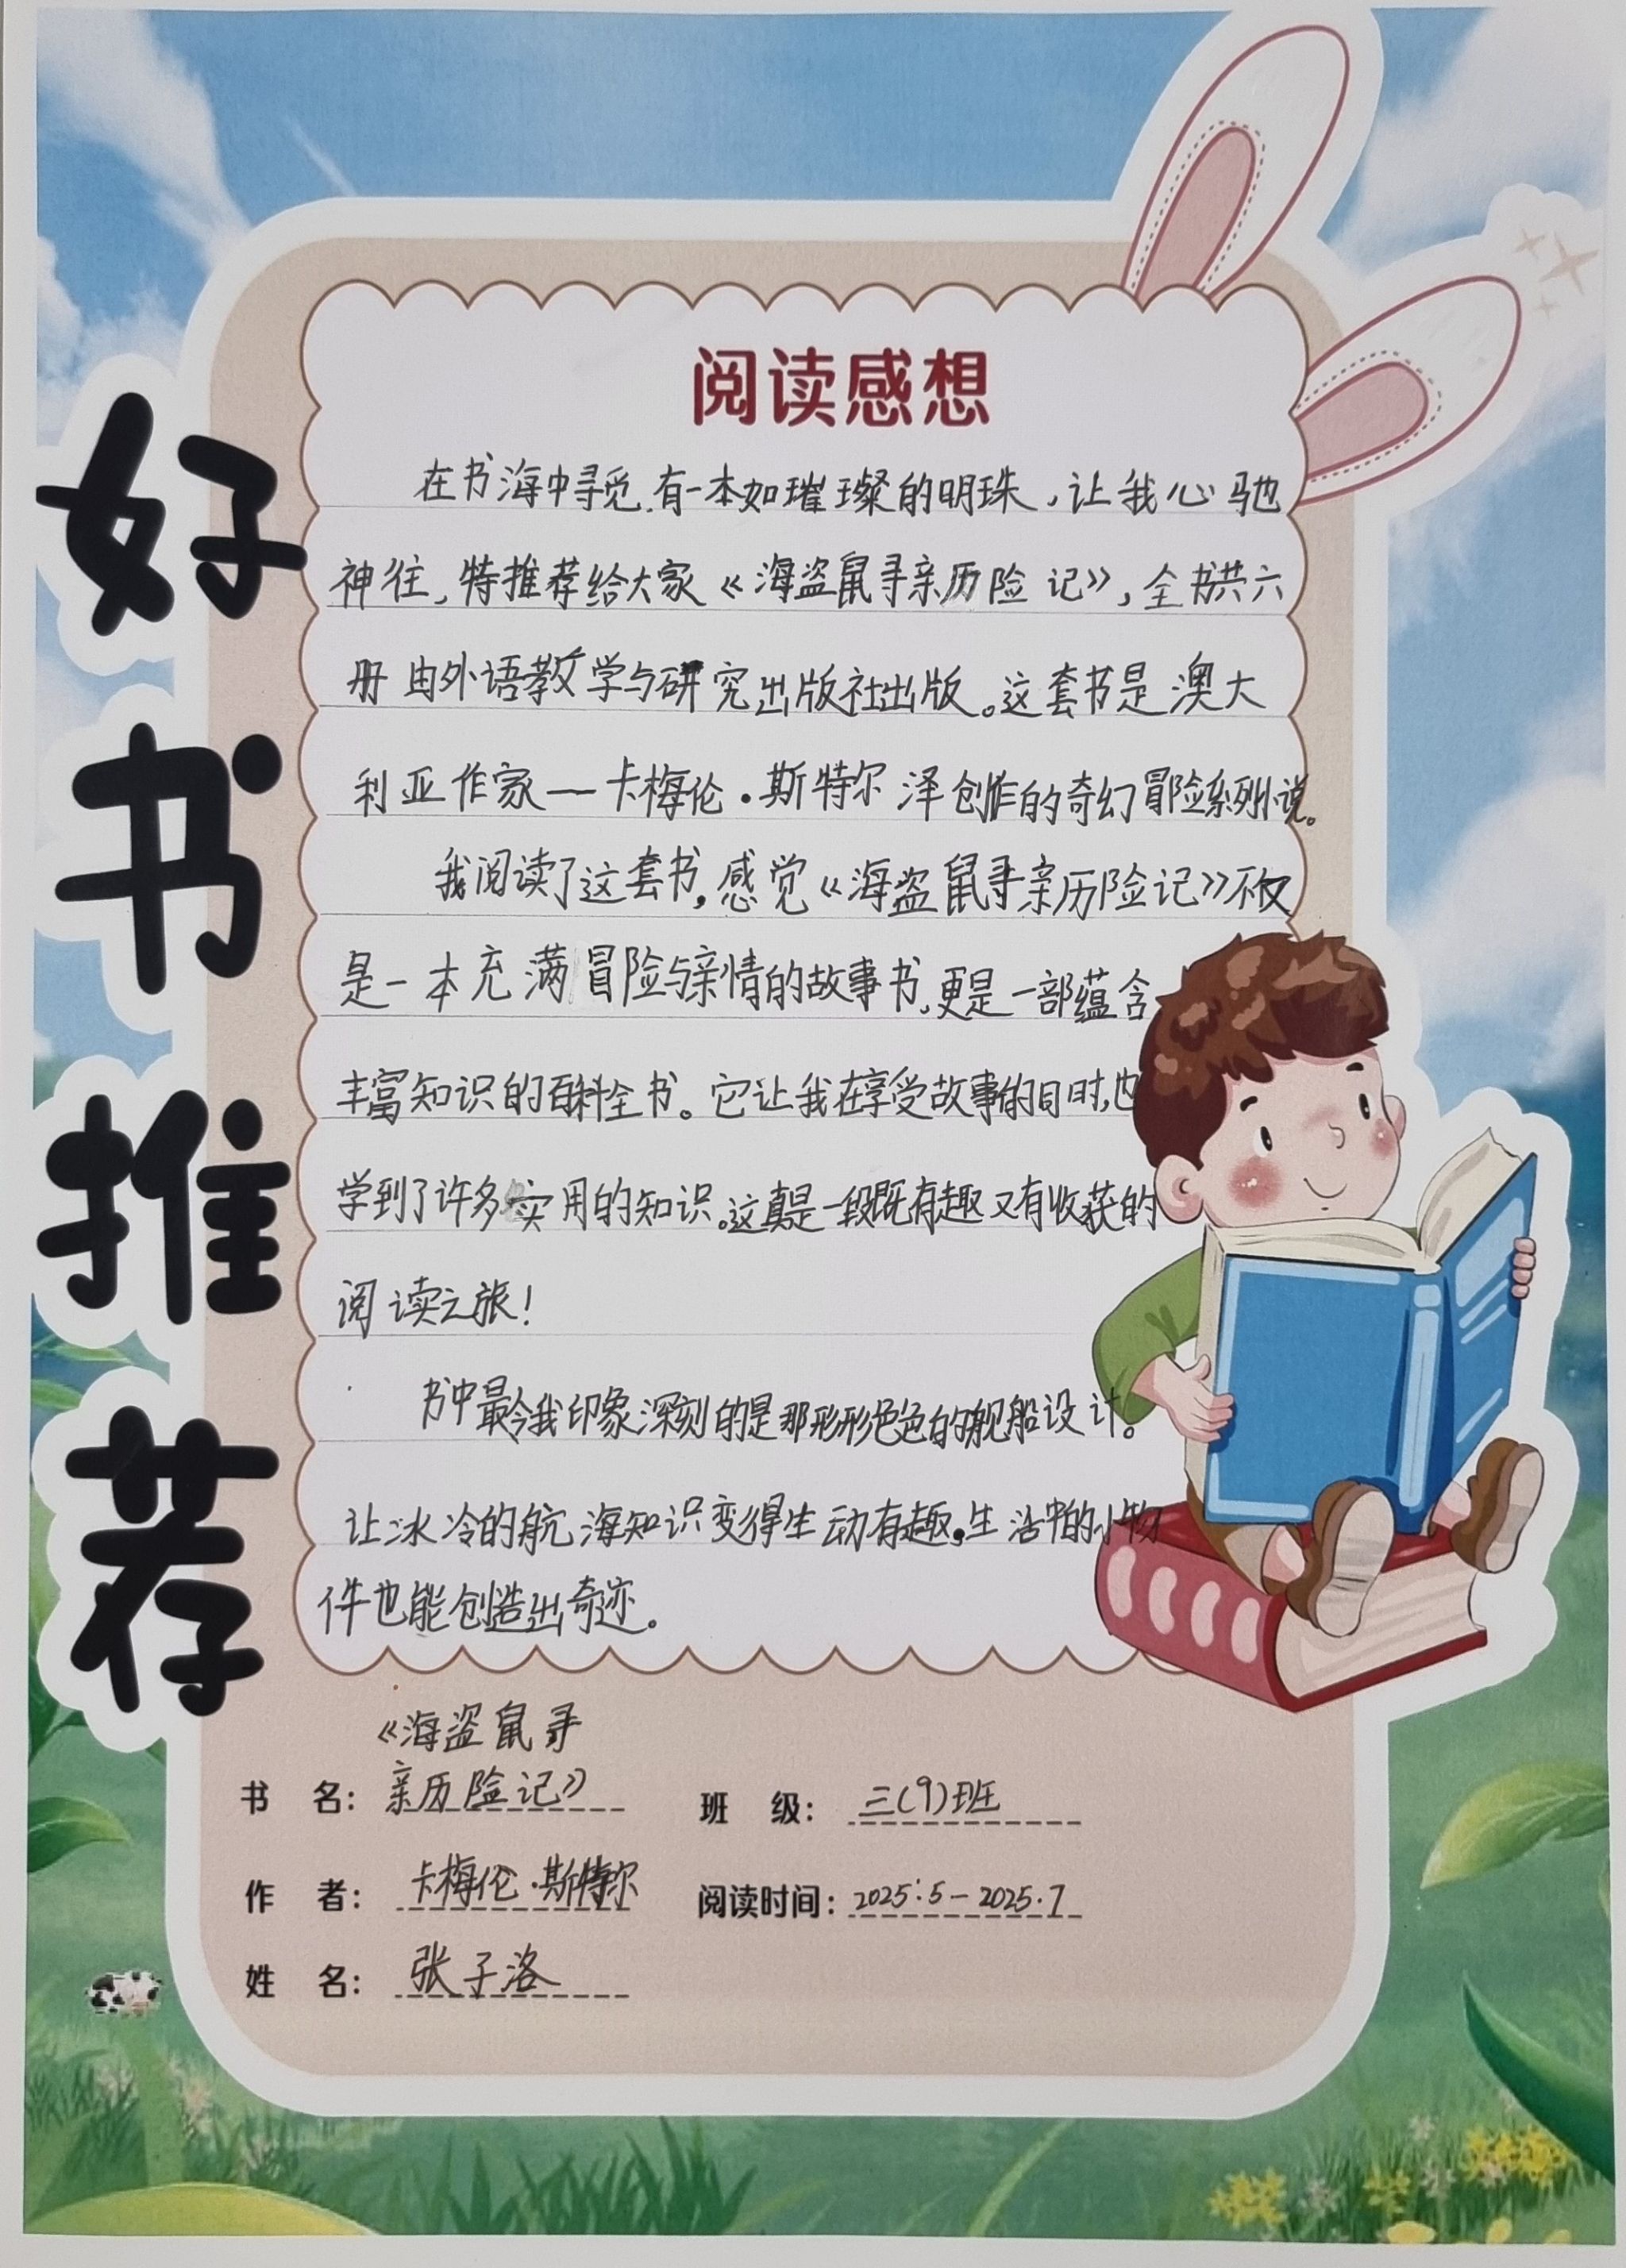 好书推荐
阅读感想
在书海中寻觅,有一本如璀璨的明珠,让我心驰
神往,特推荐给大家《海盗鼠寻亲历险记》,全书共六
册由外语教学与研究出版社出版。这套书是澳大
利亚作家一卡梅伦·斯特尔泽创作的奇幻冒险系列小说。
我阅读了这套书,感觉《海盗鼠寻亲历险记》不仅
是一本充满冒险与亲情的故事书,更是一部蕴含
丰富知识的百科全书。它让我在享受故事的同时,也
学到了许多实用的知识。这真是一段既有趣又有收获的
阅读之旅!
书中最令我印象深刻的是那形形色色的舰船设计。
让冰冷的航海知识变得生动有趣。生活中的小物
件也能创造出奇迹。
书 名:《海盗鼠寻
亲历险记》
班 级:三(9)班
作 者:卡梅伦·斯特尔
阅读时间:2025.5-2025.7
姓 名:张子洛